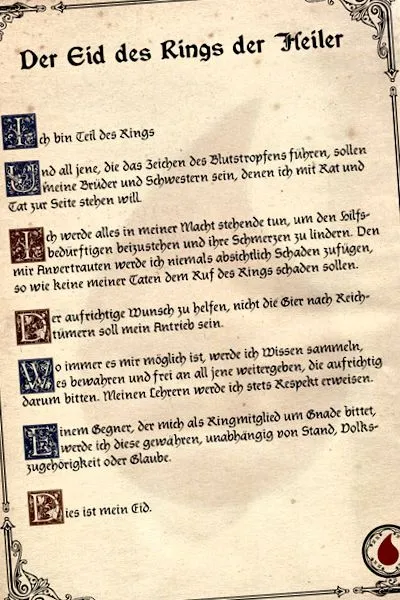 Der Eid des Rings der Heiler
Ich bin Teil des Rings
Und all jene, die das Zeichen des Blutstropfens führen, sollen
meine Brüder und Schwestern sein, denen ich mit Rat und
Tat zur Seite stehen will.
Ich werde alles in meiner Macht stehende tun, um den Hilfs-
bedürftigen beizustehen und ihre Schmerzen zu lindern. Den
mir Anvertrauten werde ich niemals absichtlich Schaden zufügen,
so wie keine meiner Taten dem Ruf des Rings schaden sollen.
Der aufrichtige Wunsch zu helfen, nicht die Gier nach Reich-
tümern soll mein Antrieb sein.
Wo immer es mir möglich ist, werde ich Wissen sammeln,
es bewahren und frei an all jene weitergeben, die aufrichtig
darum bitten. Meinen Lehrern werde ich stets Respekt erweisen.
Einem Gegner, der mich als Ringmitglied um Gnade bittet,
werde ich diese gewähren, unabhängig von Stand, Volks-
zugehörigkeit oder Glaube.
Dies ist mein Eid.